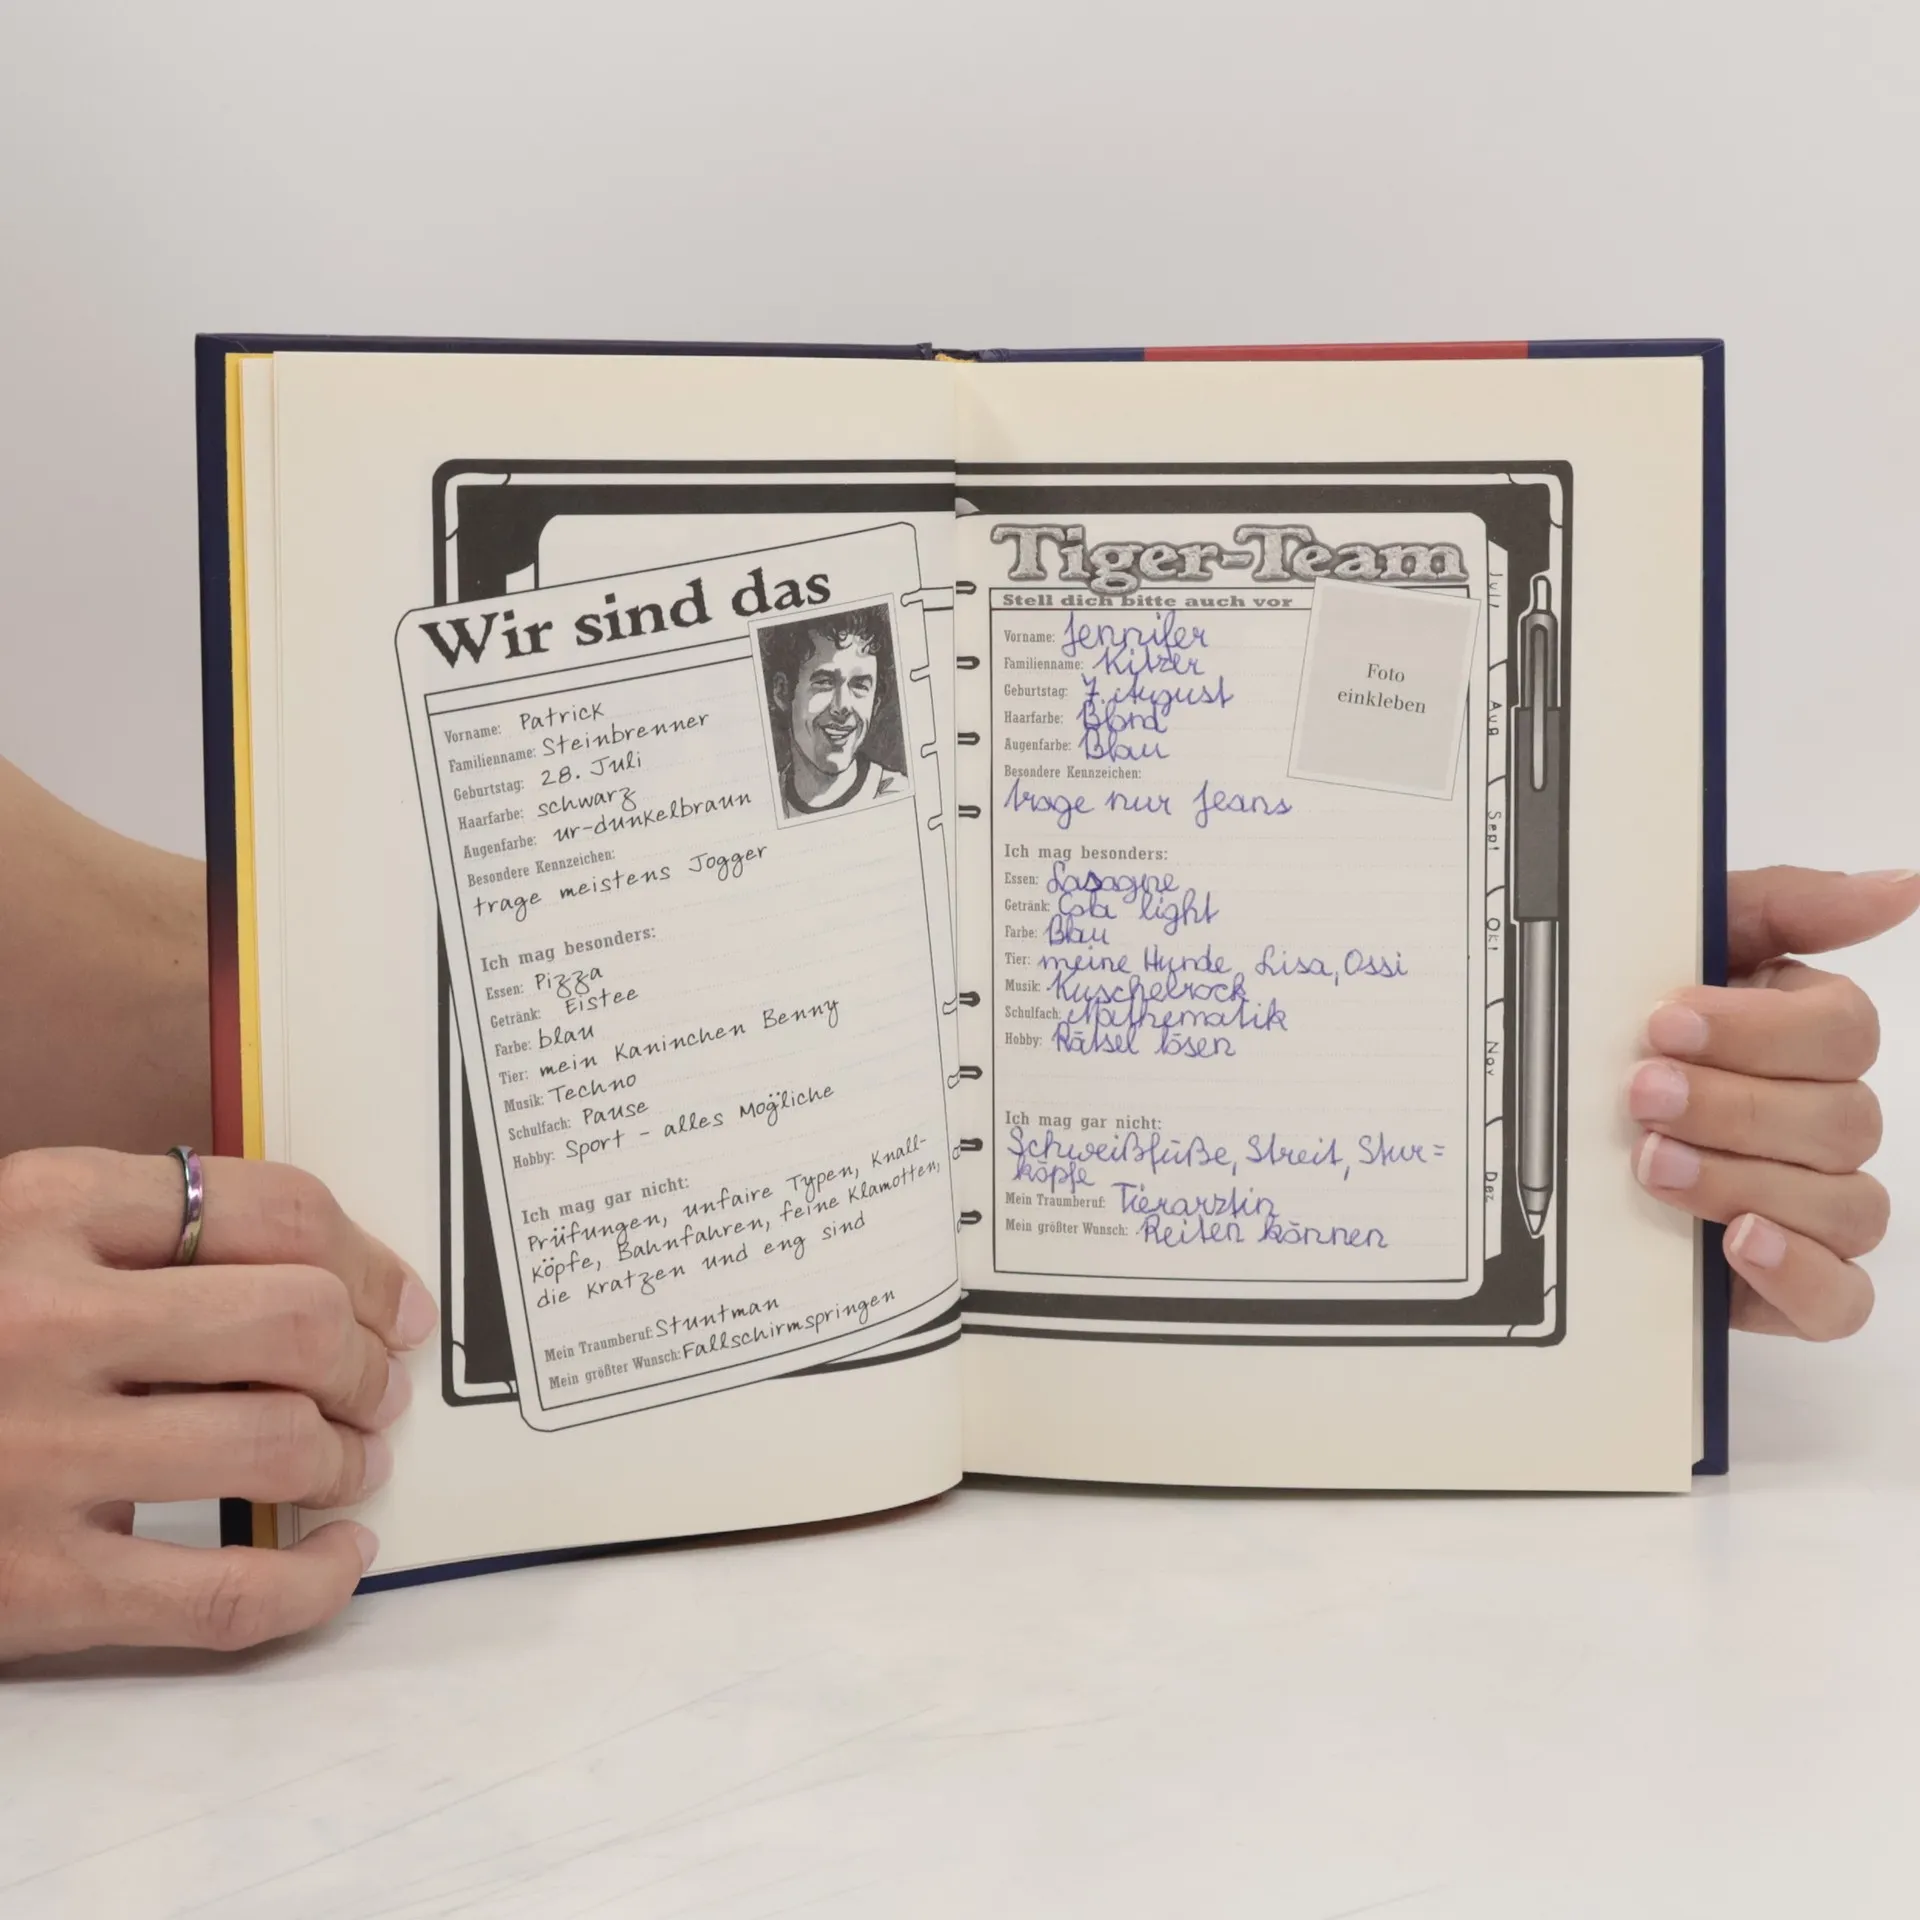 Wir sind das
Vorname: Patrick
Familienname: Steinbrenner
Geburtstag: 28. Juli
Haarfarbe: schwarz
Augenfarbe: ur-dunkelbraun
Besondere Kennzeichen:
trage meistens Jogger
Ich mag besonders:
Essen: Pizza
Getränk: Eistee
Farbe: blau
Tier: mein Kaninchen Benny
Musik: Techno
Schulfach: Pause
Hobby: Sport - alles Mögliche
Ich mag gar nicht:
Prüfungen, unfaire Typen, Knall-
köpfe, Bahnfahren, feine Klamotten,
die kratzen und eng sind
Mein Traumberuf: Stuntman
Mein größter Wunsch: Fallschirmspringen
Tiger-Team
Stell dich bitte auch vor
Vorname: Jennifer
Familienname: Kitzer
Geburtstag: 7. August
Haarfarbe: Blond
Augenfarbe: Blau
Besondere Kennzeichen:
trage nur Jeans
Ich mag besonders:
Essen: Lasagne
Getränk: Cola light
Farbe: Blau
Tier: meine Hunde, Lisa, Ossi
Musik: Kuschelrock
Schulfach: Mathematik
Hobby: Rätsel lösen
Ich mag gar nicht:
Schweißfüße, Streit, Stur=
köpfe
Mein Traumberuf: Tierärztin
Mein größter Wunsch: Reiten können
Foto
einkleben
Juli
Aug
Sept
Okt
Nov
Dez